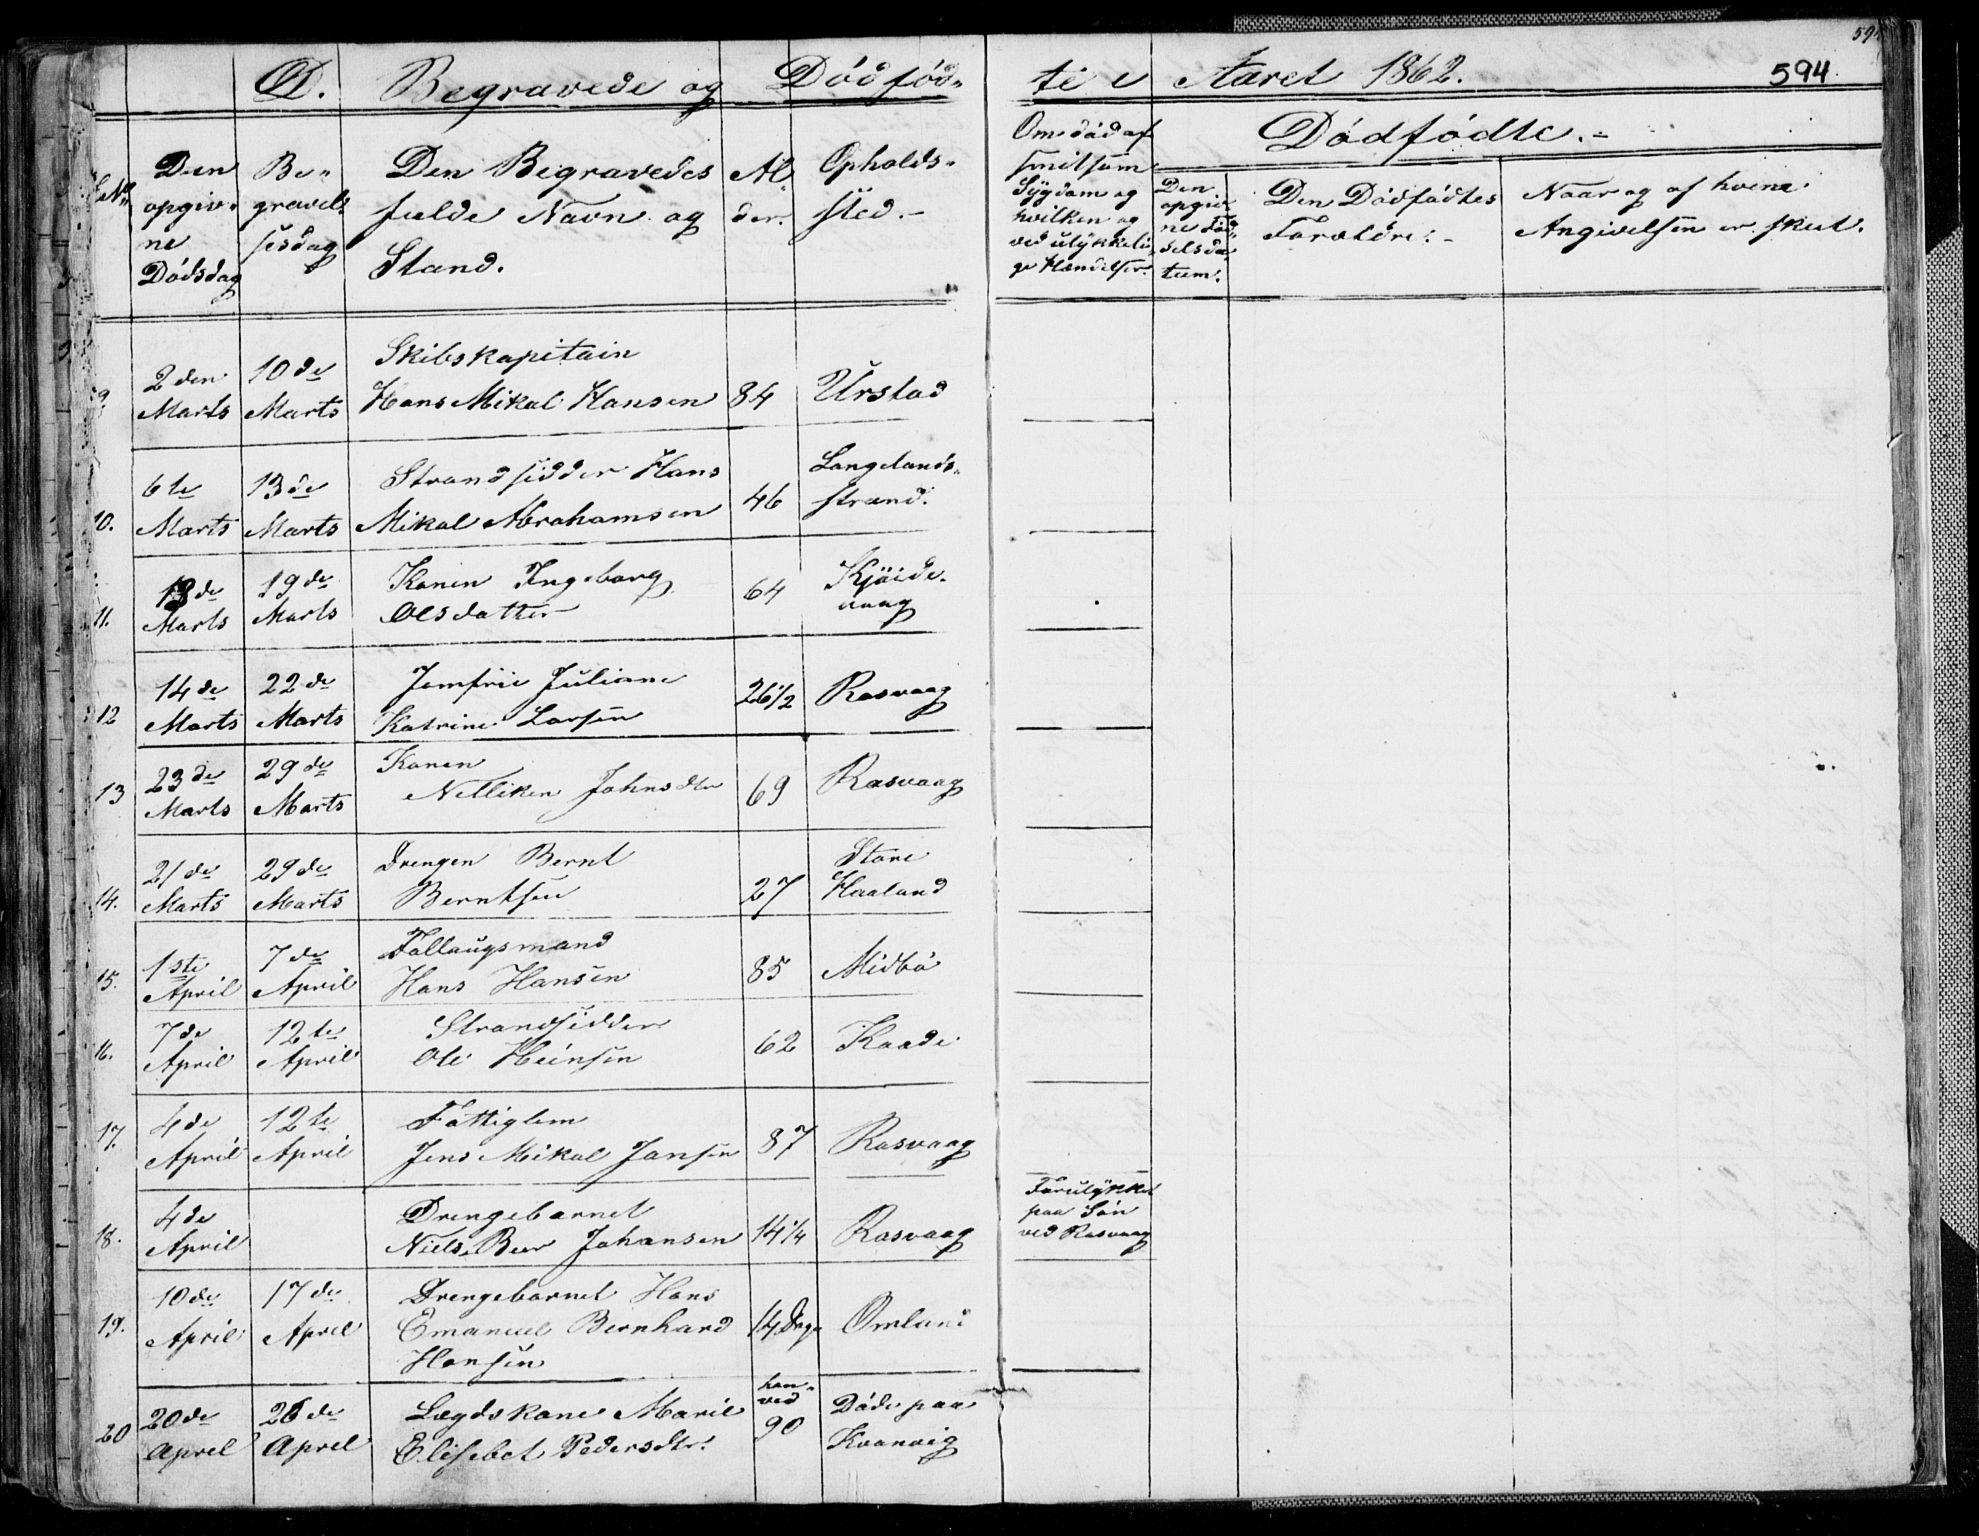 D. Begravede og Dödföd-
te i Aaret 1862.
594.
No
Den
opgiv-
ne
Dödsdag
Be-
gravel-
sesdag
Den Begravedes
fulde Navn og
Stand.
Al-
der.
Opholds-
sted.-
Om död af
smitsom
Sÿgdom og
hvilken og
ved ulykkeli-
ge Hændelser.
Dödfödte.-
Den
opgiv-
ne Föd-
selsda-
tum.
Den Dödfödtes
Forældre.-
Naar og af hvem
Angivelsen er skeet.
9. 2den Marts 10de Marts Skibskapitain
Hans Mikal Hansen 84 Urstad
10. 6te Marts 13de Marts Strandsidder Hans
Mikal Abrahamsen 46 Langelands-
strand.
11. 13de Marts 19de Marts Konen Ingeborg
Olsdatter 64 Kjöide-
vaag
12 14de Marts 22de Marts Jomfrue Juliane
Katrine Larsen 26 1/2 Rasvaag
13 23de Marts 29de Marts Konen
Nelliken Johnsdtr 69 Rasvaag
14. 21de Marts 29de Marts Drengen Bernt
Berntsen 27 Store
Haaland
15. 1ste April 7de April Follaugsmand
Hans Hansen 85 Midbö
16. 7de April 12te April Strandsidder
Ole Heinsen 62 Kaade
17. 4de April 12te April Fattiglem
Jens Mikal Jansen 87 Rasvaag
18. 4de April Drengebarnet
Niels Beer Johansen 14 1/4 Rasvaag
Forulÿkket
paa Söen
ved Rasvaag
19. 10de April 17de April Drengebarnet Hans
Emanuel Bernhard
Hansen 14 Dage Omland
20 20de April 26de April Lægdskone Marie
Elisebet Pedersdtr. hen-
ved
90 Döde paa
Kvanvig